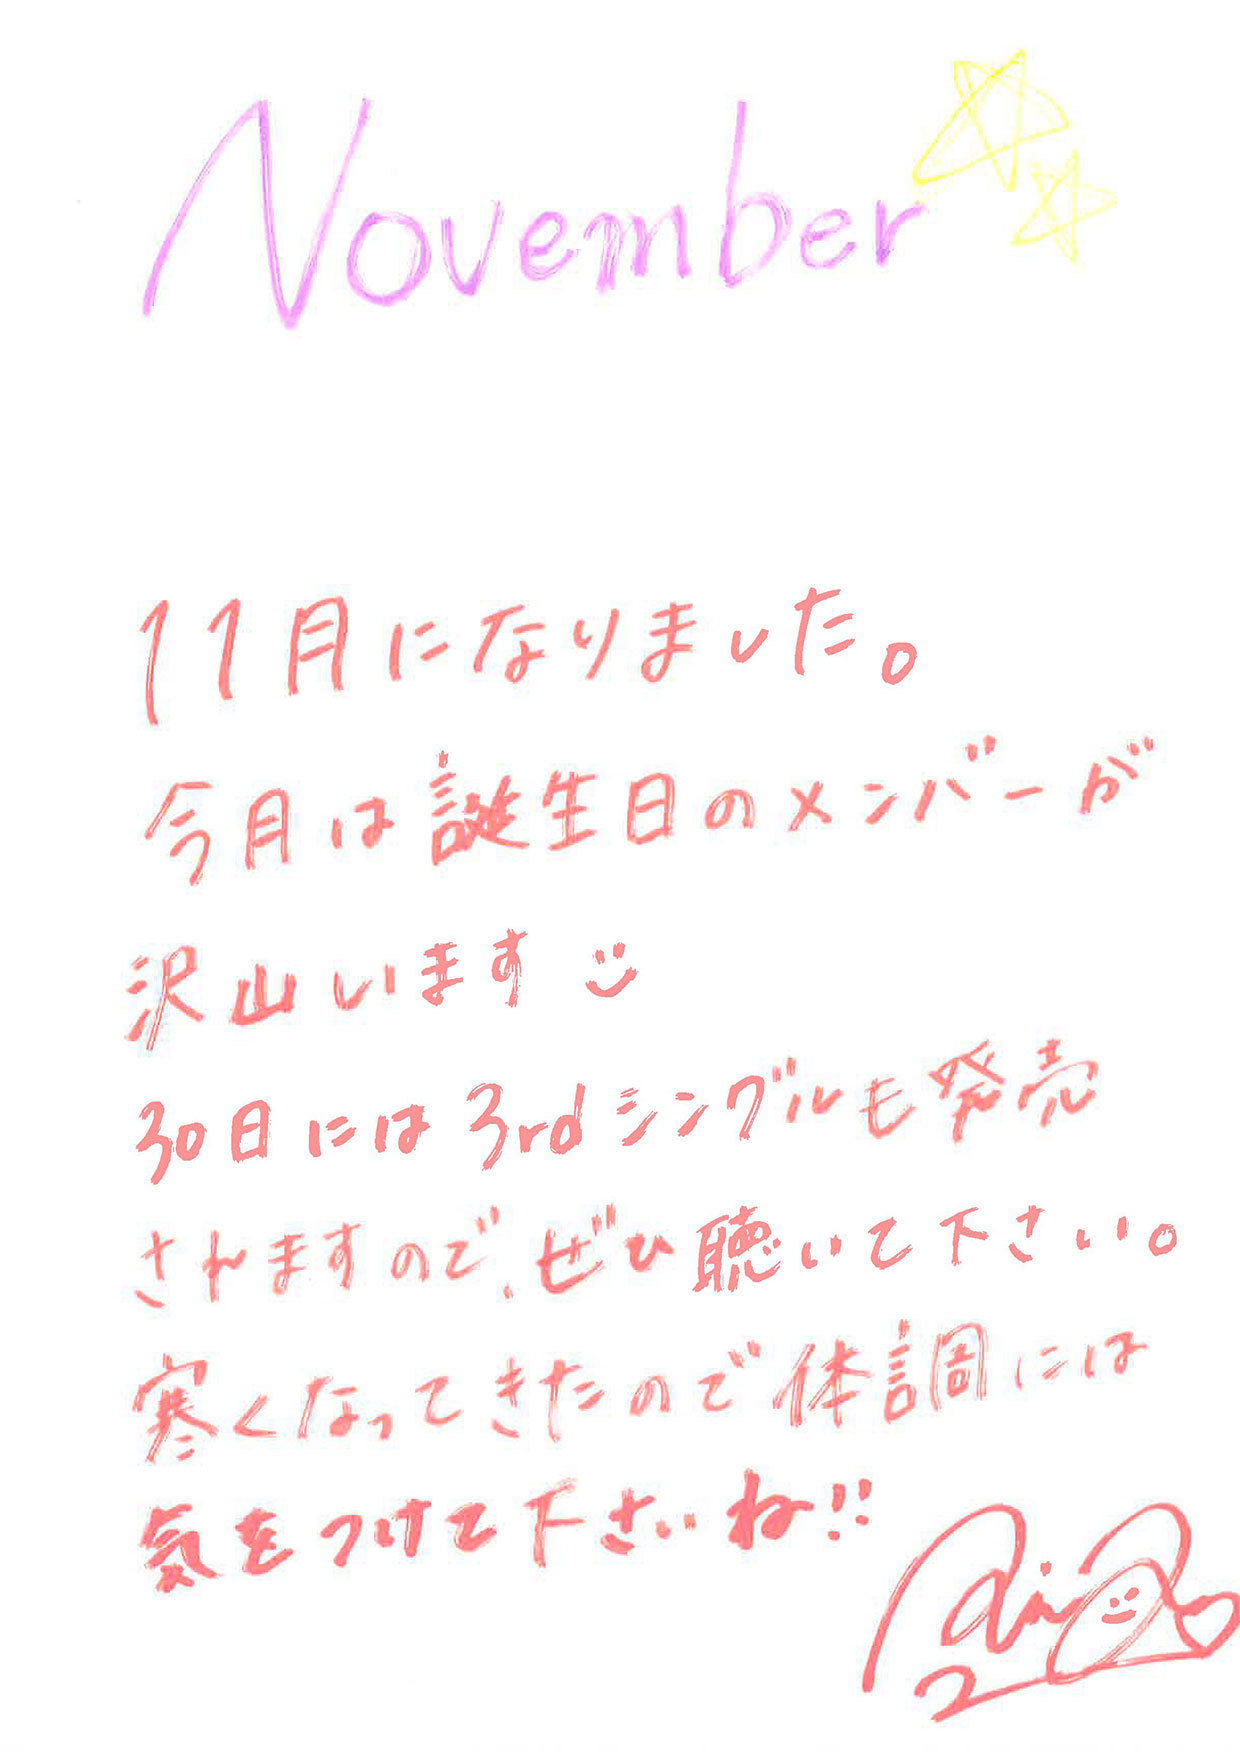 November
11月になりました。
今月は誕生日のメンバーが
沢山います
30日には3rdシングルも発売
されますので、ぜひ聴いて下さい。
寒くなってきたので体調には
気をつけて下さいね!!